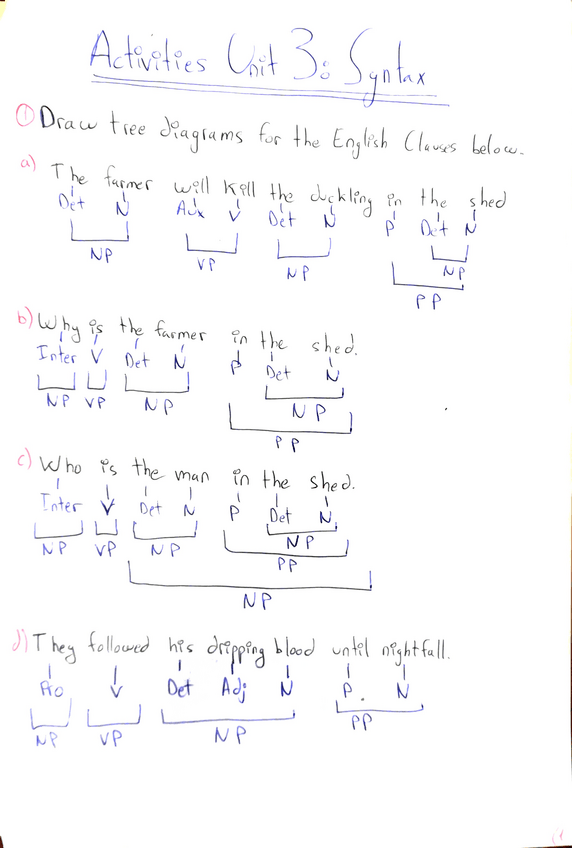 Activities Unit 3: Syntax
① Draw tree diagrams for the English Clauses below.
a) The farmer will kill the duckling in the shed
Det N Aux V Det N P Det N
NP VP NP NP
PP
b) Why is the farmer in the shed.
Inter V Det N P Det N
NP VP NP NP
PP
c) Who is the man in the shed.
Inter V Det N P Det N
NP VP NP NP
PP
NP
d) They followed his dripping blood until nightfall.
Pro V Det Adj N P. N
NP VP NP PP